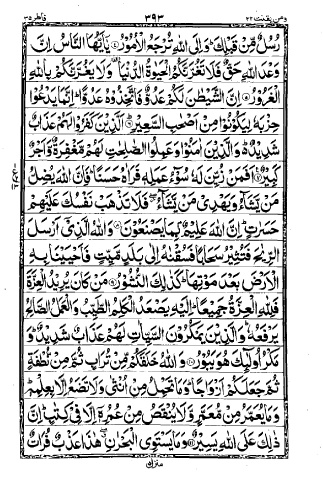 فاطر ٣٥ ٣٩٣ ومن يقنت ٢٢
رُسُلٌ مِّنْ قَبْلِكَ ؕ وَاِلَى اللّٰهِ تُرْجَعُ الْاُمُوْرُ ۝ يٰۤاَيُّهَا النَّاسُ اِنَّ
وَعْدَ اللّٰهِ حَقٌّ فَلَا تَغُرَّنَّكُمُ الْحَيٰوةُ الدُّنْيَا ۥ وَلَا يَغُرَّنَّكُمْ بِاللّٰهِ
الْغَرُوْرُ ۝ اِنَّ الشَّيْطٰنَ لَكُمْ عَدُوٌّ فَاتَّخِذُوْهُ عَدُوًّا ؕ اِنَّمَا يَدْعُوْا
حِزْبَهٗ لِيَكُوْنُوْا مِنْ اَصْحٰبِ السَّعِيْرِ ۝ اَلَّذِيْنَ كَفَرُوْا لَهُمْ عَذَابٌ
شَدِيْدٌ ؕ وَالَّذِيْنَ اٰمَنُوْا وَعَمِلُوا الصّٰلِحٰتِ لَهُمْ مَّغْفِرَةٌ وَّاَجْرٌ
كَبِيْرٌ ۝ اَفَمَنْ زُيِّنَ لَهٗ سُوْٓءُ عَمَلِهٖ فَرَاٰهُ حَسَنًا ؕ فَاِنَّ اللّٰهَ يُضِلُّ
مَنْ يَّشَآءُ وَيَهْدِيْ مَنْ يَّشَآءُ ۖ فَلَا تَذْهَبْ نَفْسُكَ عَلَيْهِمْ
حَسَرٰتٍ ؕ اِنَّ اللّٰهَ عَلِيْمٌۢ بِمَا يَصْنَعُوْنَ ۝ وَاللّٰهُ الَّذِيْۤ اَرْسَلَ
الرِّيٰحَ فَتُثِيْرُ سَحَابًا فَسُقْنٰهُ اِلٰى بَلَدٍ مَّيِّتٍ فَاَحْيَيْنَا بِهِ
الْاَرْضَ بَعْدَ مَوْتِهَا ؕ كَذٰلِكَ النُّشُوْرُ ۝ مَنْ كَانَ يُرِيْدُ الْعِزَّةَ
فَلِلّٰهِ الْعِزَّةُ جَمِيْعًا ؕ اِلَيْهِ يَصْعَدُ الْكَلِمُ الطَّيِّبُ وَالْعَمَلُ الصَّالِحُ
يَرْفَعُهٗ ؕ وَالَّذِيْنَ يَمْكُرُوْنَ السَّيِّاٰتِ لَهُمْ عَذَابٌ شَدِيْدٌ ؕ وَ
مَكْرُ اُولٰٓئِكَ هُوَ يَبُوْرُ ۝ وَاللّٰهُ خَلَقَكُمْ مِّنْ تُرَابٍ ثُمَّ مِنْ نُّطْفَةٍ
ثُمَّ جَعَلَكُمْ اَزْوَاجًا ؕ وَمَا تَحْمِلُ مِنْ اُنْثٰى وَلَا تَضَعُ اِلَّا بِعِلْمِهٖ ؕ
وَمَا يُعَمَّرُ مِنْ مُّعَمَّرٍ وَّلَا يُنْقَصُ مِنْ عُمُرِهٖۤ اِلَّا فِيْ كِتٰبٍ ؕ اِنَّ
ذٰلِكَ عَلَى اللّٰهِ يَسِيْرٌ ۝ وَمَا يَسْتَوِي الْبَحْرٰنِ ۖ هٰذَا عَذْبٌ فُرَاتٌ